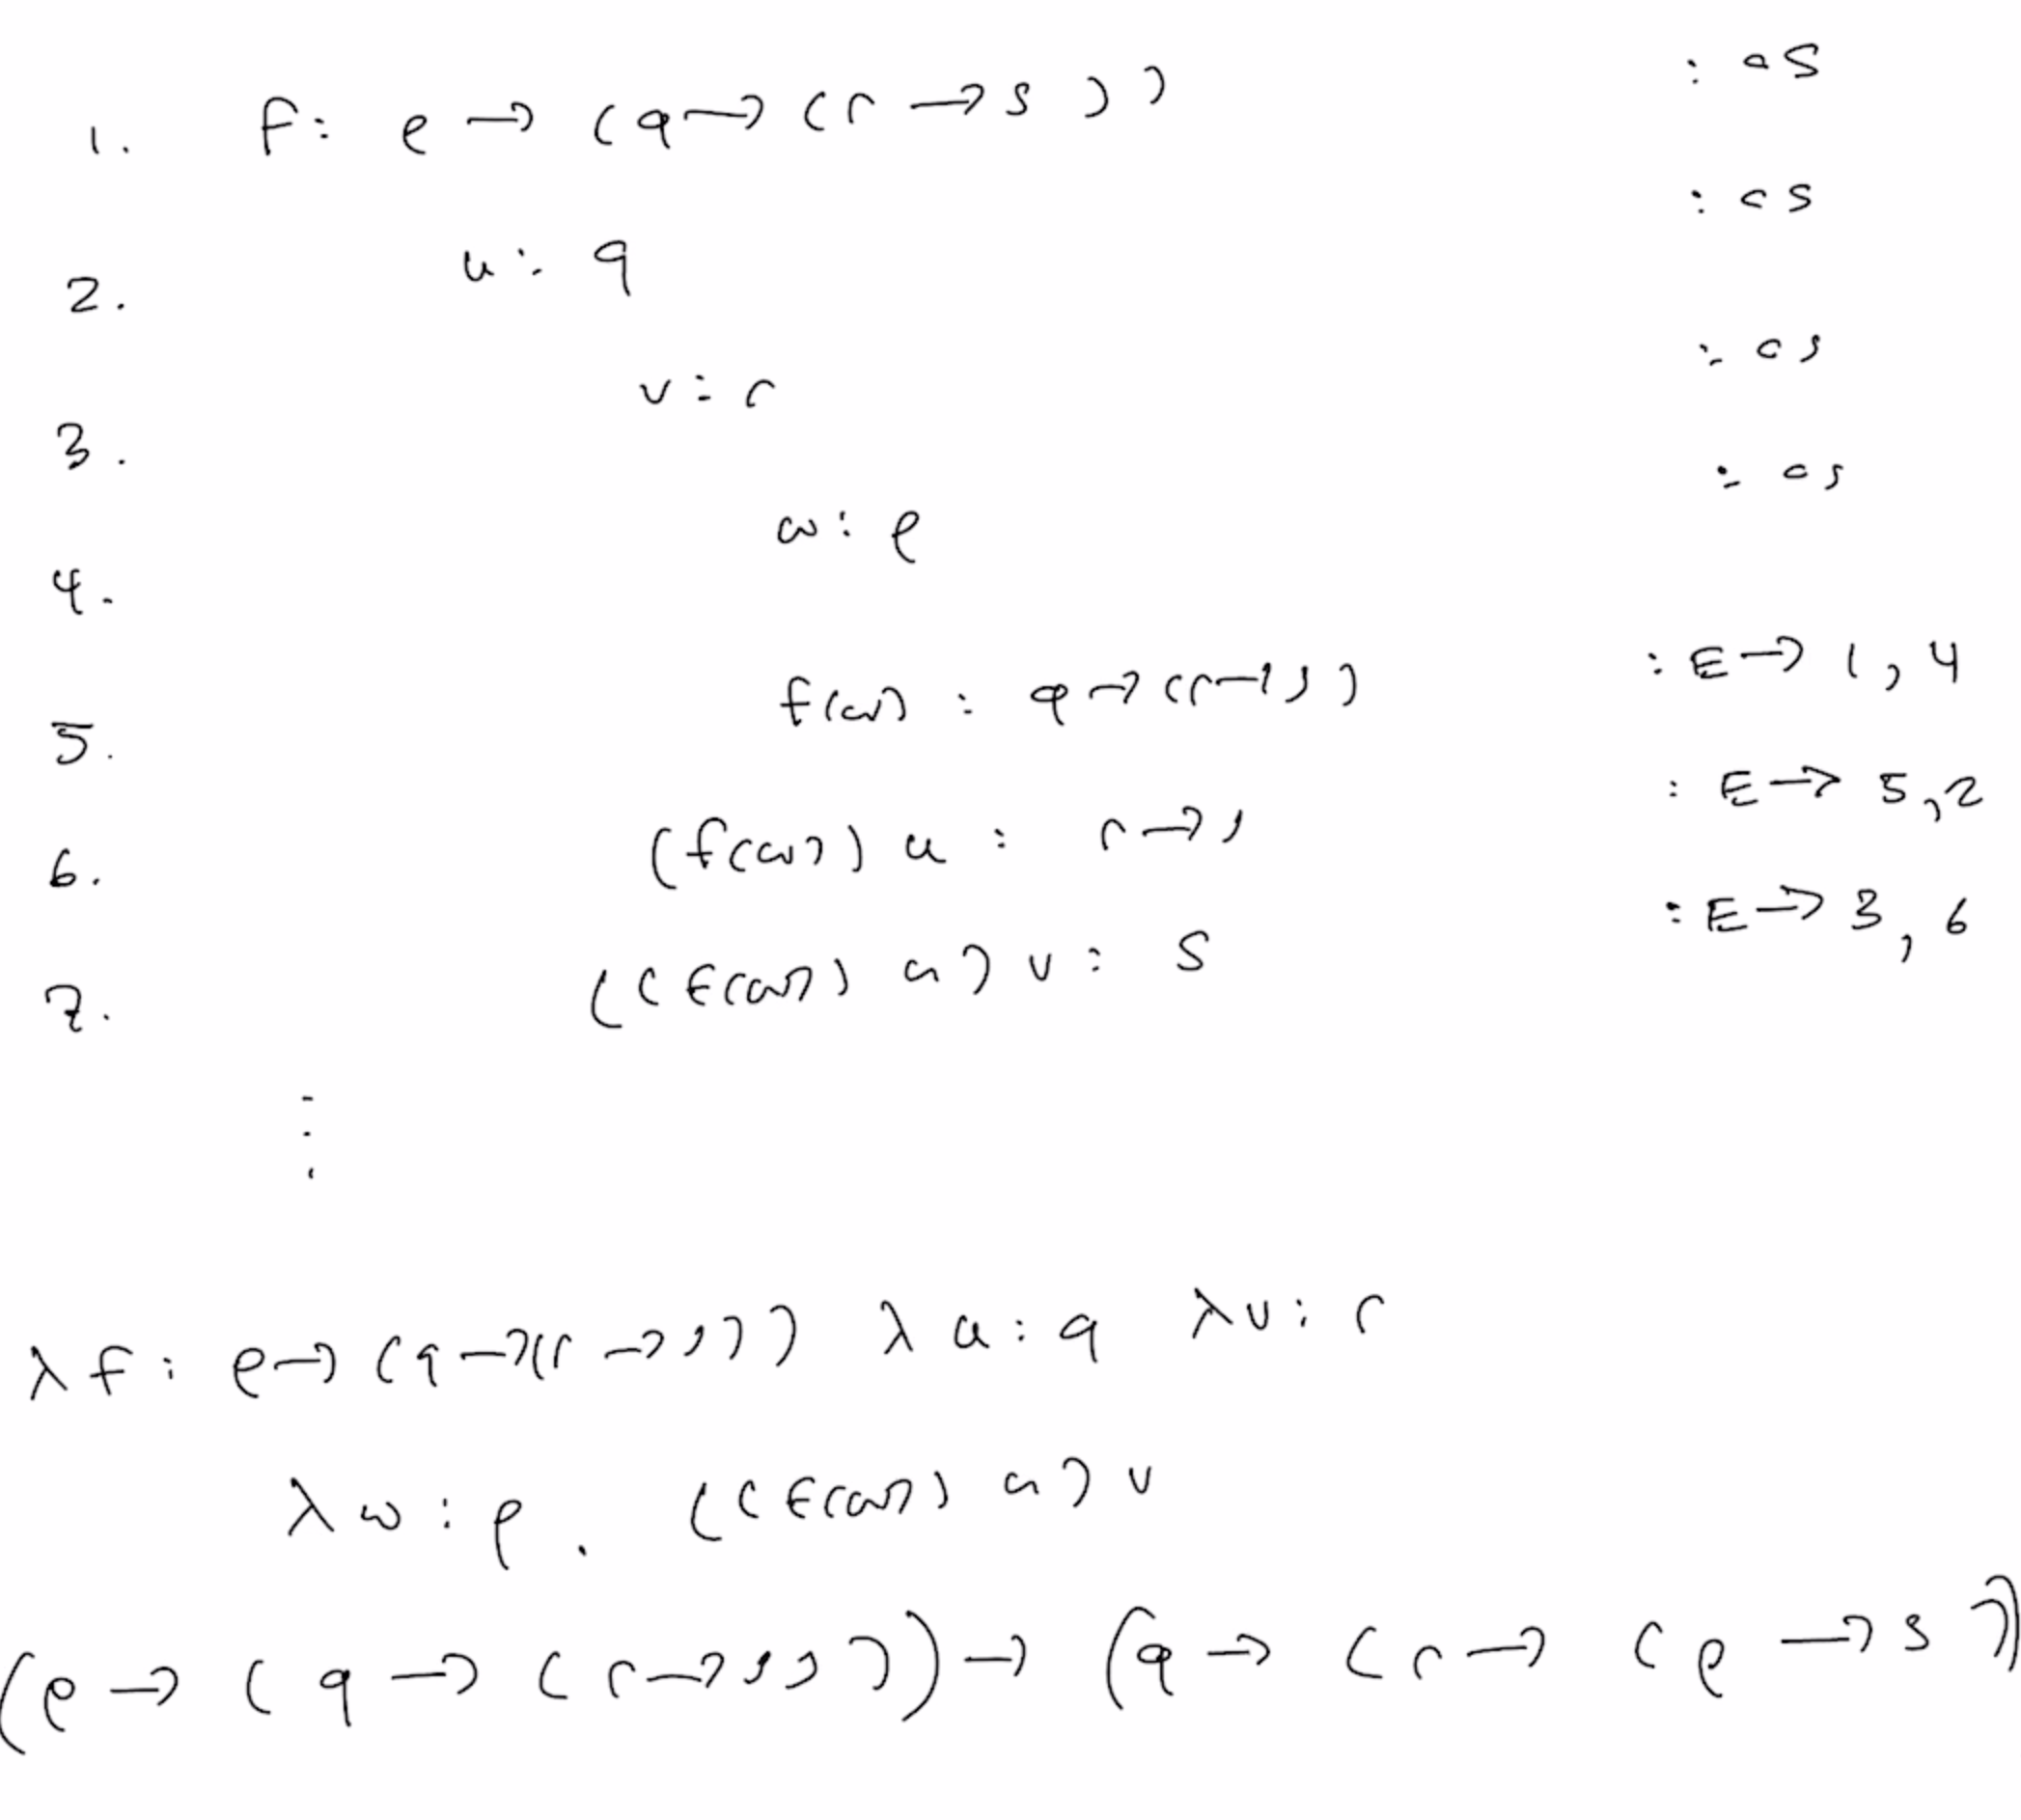 1. f: p → (q → (r → s)) : as
2. u: q : as
3. v: r : as
4. w: p : as
5. f(w) : q → (r → s) : E→ 1, 4
6. (f(w)) u : r → s : E→ 5, 2
7. ((f(w)) u) v : s : E→ 3, 6
⋮
λf: p → (q → (r → s)) λu: q λv: r
λw: p. ((f(w)) u) v
(p → (q → (r → s))) → (q → (r → (p → s))